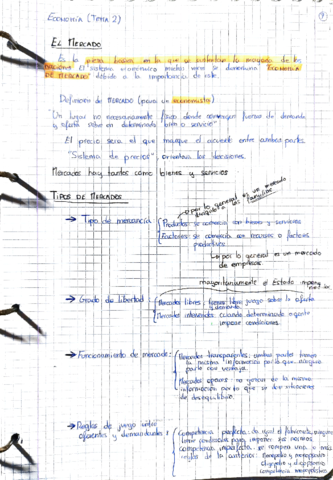 ECONOMÍA (TEMA 2)
EL MERCADO
Es la pieza básica en la que se intercambia la mayoría de los
El sistema económico muchas veces se denomina "ECONOMÍA
DE MERCADO" debido a la importancia de este.
Definición de MERCADO (para un economista)
"Un lugar no necesariamente físico donde convergen fuerzas de demanda
y oferta sobre un determinado bien o servicio"
El precio será el que marque el acuerdo entre ambas partes.
"Sistema de precios", orientan las decisiones.
Mercados hay tantos como bienes y servicios
TIPOS DE MERCADOS
por lo general es un mercado
→ Tipo de mercancía
Productos: se comercia con bienes y servicios
Factores: se comercia con recursos o factores
productivos
por lo general es un mercado
de empresas
mayoritariamente el Estado
→ Grado de libertad
Mercados libres: libre juego entre la oferta
Mercados intervenidos: cuando determinado agente
impone condiciones.
→ Funcionamiento de mercado:
Mercados transparentes: ambas partes tienen
la misma información por lo que ninguna
parte con ventaja.
Mercados opacos: no gozan de la misma
información por lo que se dan situaciones
de desequilibrio.
→ Reglas de juego entre
oferentes y demandantes:
Competencia perfecta: